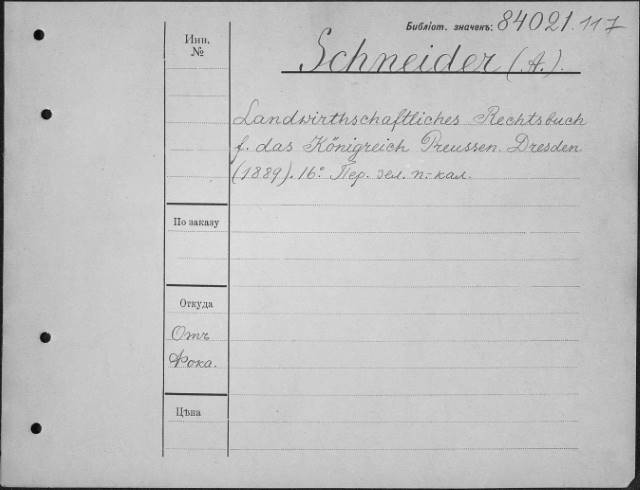 Библіот. значекъ: 84021.117
Инв.
№
Schneider (A.).
Landwirthschaftliches Rechtsbuch
f. das Königreich Preussen. Dresden
(1889). 16° Пер. зел. п.-кал.
По заказу
Откуда
Отъ
Фока.
Цѣна